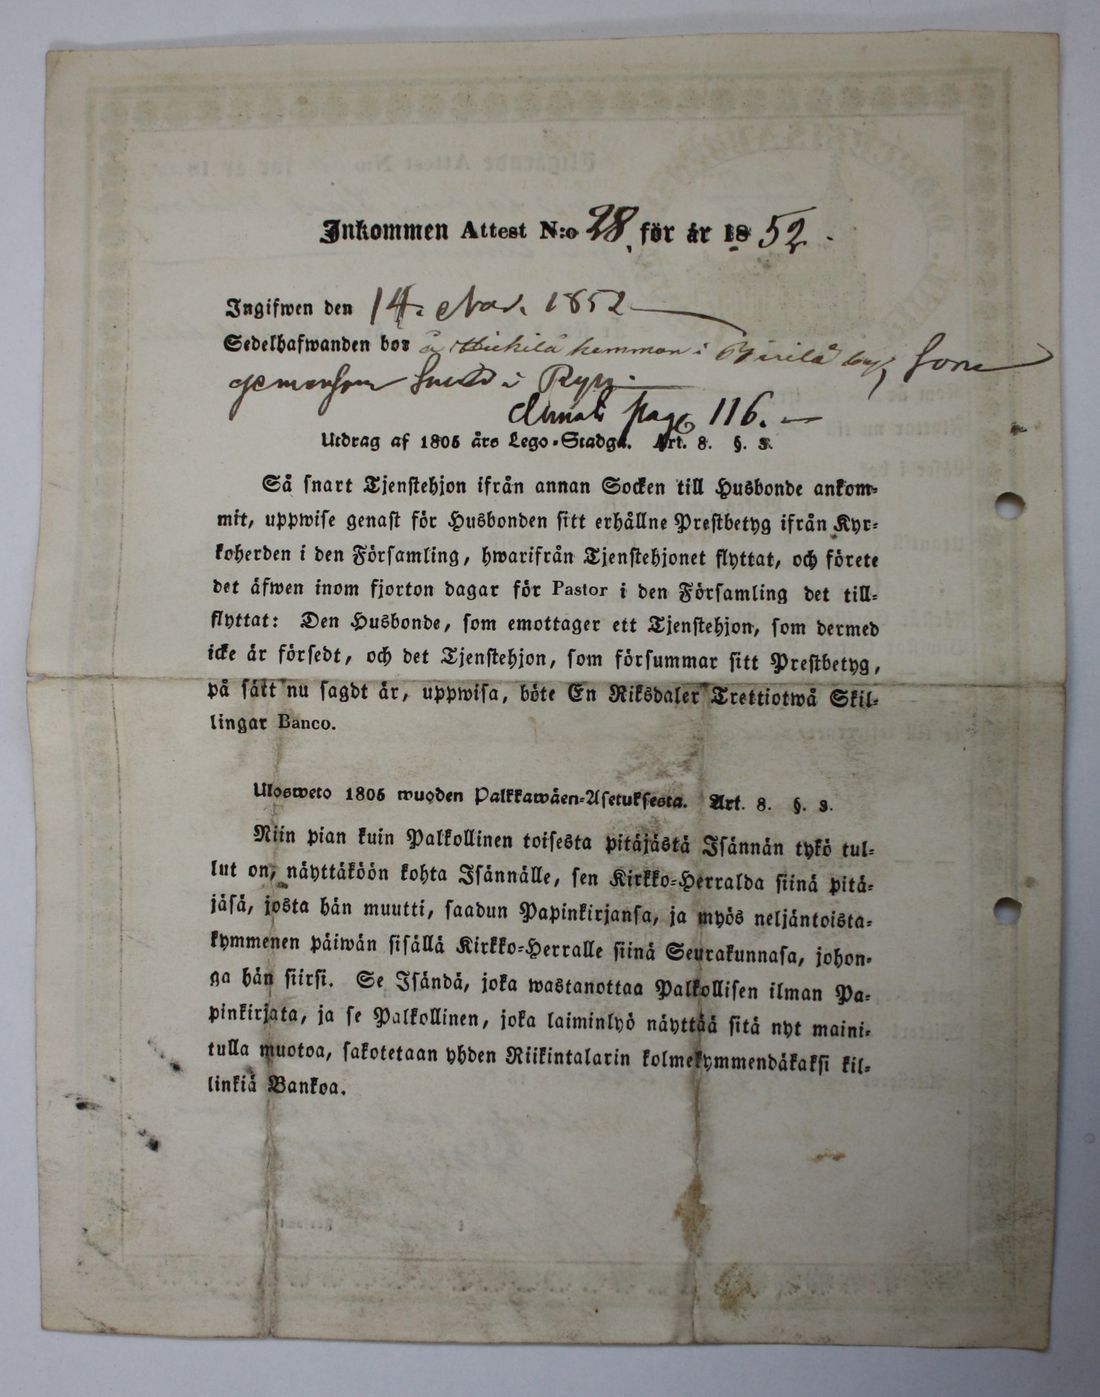 Inkommen Attest N:o 28, för år 1852.
Ingifwen den 14. Nov. 1852
Sedelhafwanden bor å hemman i by, Som
i
pag 116.
Utdrag af 1805 års Lego-Stadga. Art. 8. §. 3.
Så snart Tjenstehjon ifrån annan Socken till Husbonde ankom-
mit, uppwise genast för Husbonden sitt erhållne Prestbetyg ifrån Kyr-
koherden i den Församling, hwarifrån Tjenstehjonet flyttat, och förete
det äfwen inom fjorton dagar för Pastor i den Församling det till-
flyttat: Den Husbonde, som emottager ett Tjenstehjon, som dermed
icke är försedt, och det Tjenstehjon, som försummar sitt Prestbetyg,
på sätt nu sagdt är, uppwisa, böte En Riksdaler Trettiotwå Skil-
lingar Banco.
Ulosweto 1805 wuoden Palkkawäen-Asetuksesta. Art. 8. §. 3.
Niin pian kuin Palkollinen toisesta pitäjästä Isännän tykö tul-
lut on, näyttäköön kohta Isännälle, sen Kirkko-Herralda siinä pitä-
jäsä, josta hän muutti, saadun Papinkirjansa, ja myös neljäntoista-
kymmenen päiwän sisällä Kirkko-Herralle siinä Seurakunnasa, johon-
ga hän siirsi. Se Isändä, joka wastanottaa Palkollisen ilman Pa-
pinkirjata, ja se Palkollinen, joka laiminlyö näyttää sitä nyt maini-
tulla muotoa, sakotetaan yhden Riikintalarin kolmekymmendäkaksi kil-
linkiä Bankoa.